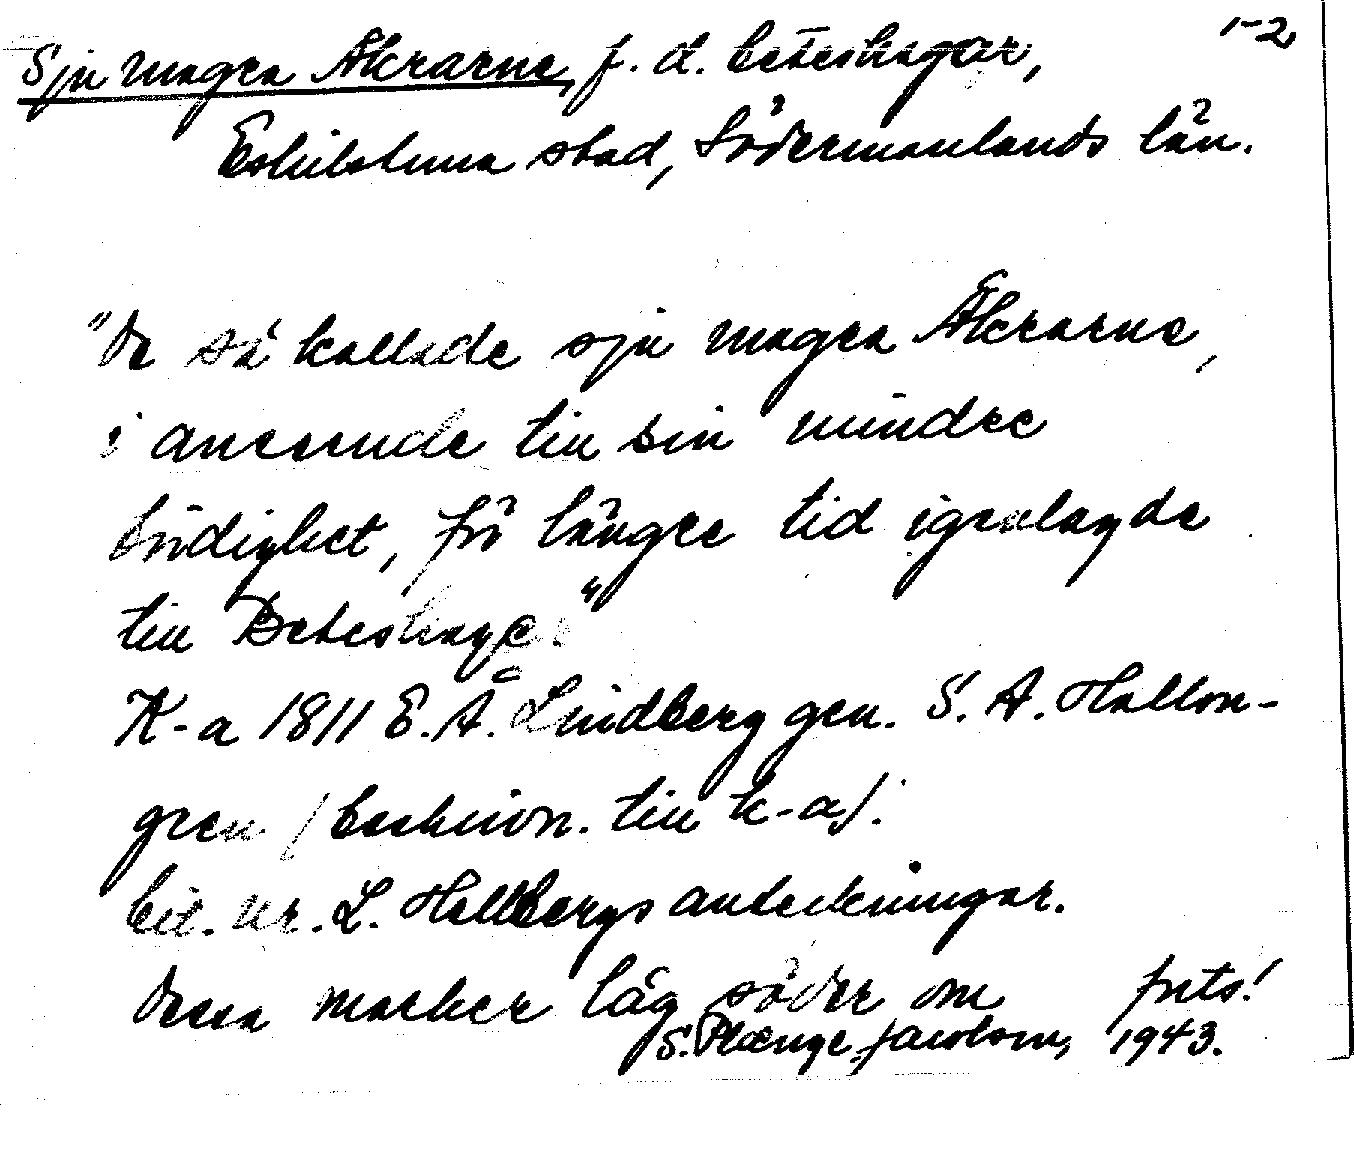 1-2
Sju magra Åkrarne, f. d. beteshagar,
Eskilstuna stad, Södermanlands län.
"De så kallade sju magra Åkrarne,
i anseende till sin mindre
bördighet, för längre tid igenlagde
till Beteshage."
K-a 1811 E. Å. Lindberg gen. S. A. Hallon-
gren /beskrivn. till k-a/.
enl. L. Hellbergs anteckningar.
Dessa marker låg söder om forts!
S. Plænge Jacobson, 1943.